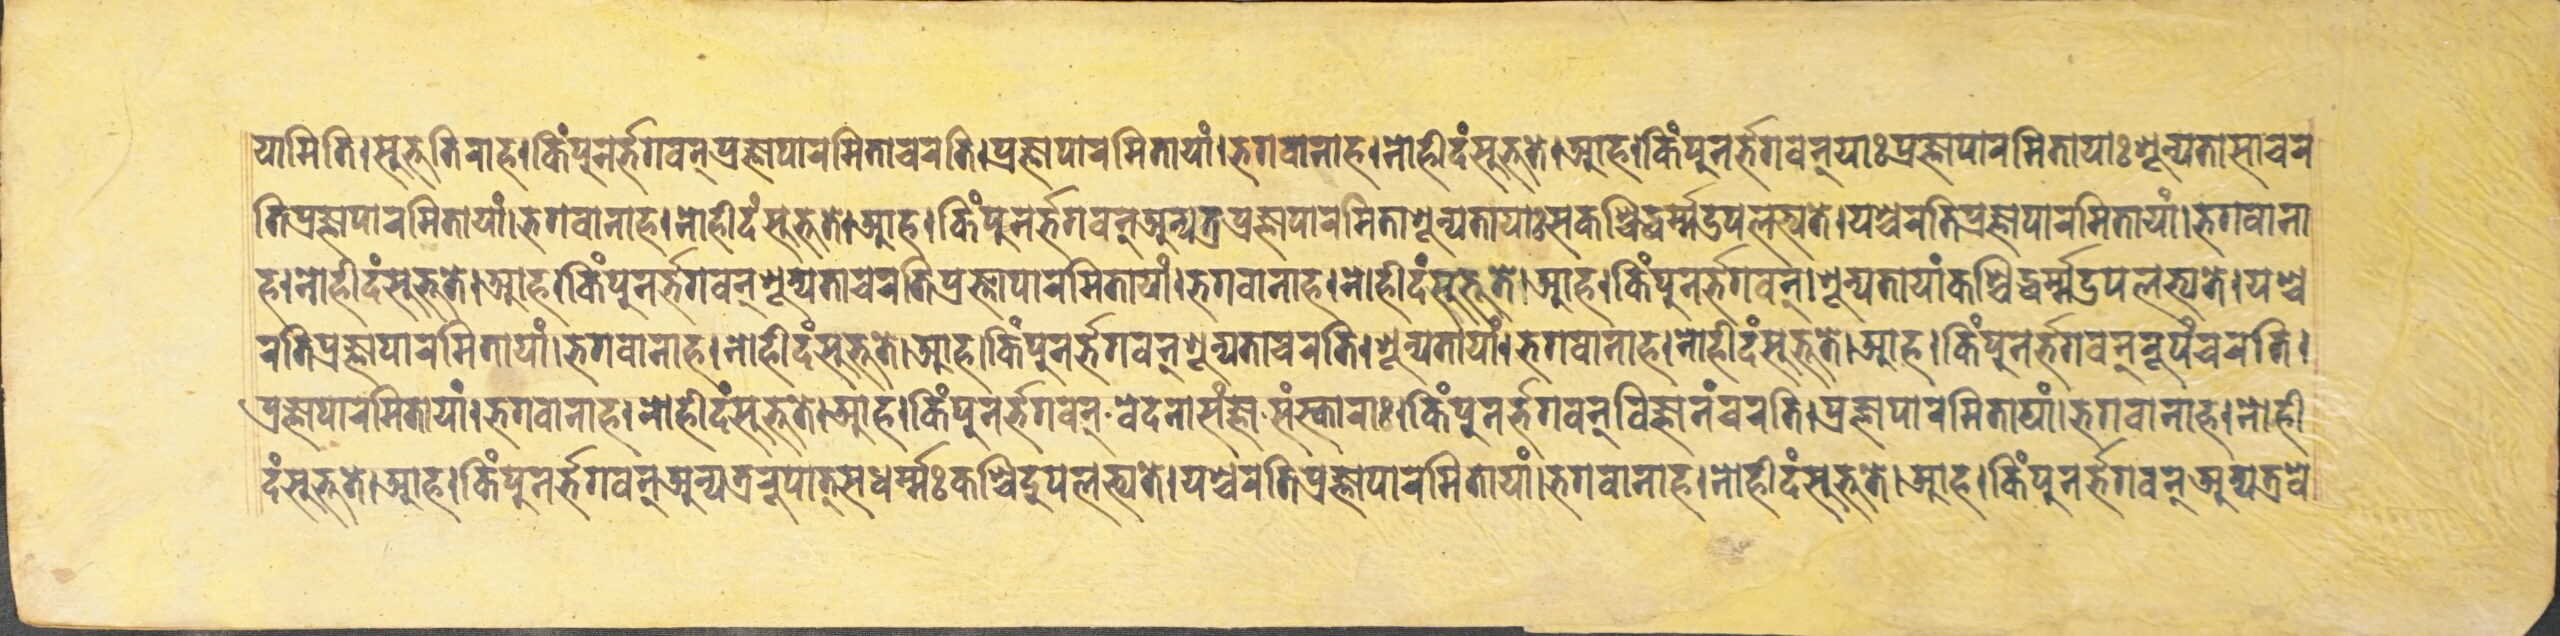 यामिति।सुभुतिराह।किंपुनर्भगवन्प्रज्ञापारमिताचरति।प्रज्ञापारमितायां।भगवानाह।नोहीदंसुभुते।आह।किंपुनर्भगवन्याःप्रज्ञापारमितायाःशून्यतासाचर
तिप्रज्ञापारमितायां।भगवानाह।नोहीदंसुभुते।आह।किंपुनर्भगवन्अन्यत्रप्रज्ञापारमिताशून्यतायाःसकश्चिद्धर्म्मउपलभ्यते।यश्चरतिप्रज्ञापारमितायां।भगवाना
ह।नोहीदंसुभुते।आह।किंपुनर्भगवन्शून्यताचरतिप्रज्ञापारमितायां।भगवानाह।नोहीदंसुभूते।आह।किंपुनर्भगवन्।शून्यतायांकश्चिद्धर्म्मउपलभ्यते।यश्च
रतिप्रज्ञापारमितायां।भगवानाह।नोहीदंसुभुते।आह।किंपुनर्भगवन्शून्यताचरति।शून्यतायां।भगवानाह।नोहीदंसुभुते।आह।किंपुनर्भगवन्रूपंचरति।
प्रज्ञापारमितायां।भगवानाह।नोहीदंसुभुते।आह।किंपुनर्भगवन्·वेदनासंज्ञा·संस्काराः।किंपुनर्भगवन्विज्ञानंचरति।प्रज्ञापारमितायां।भगवानाह।नोही
दंसुभुते।आह।किंपुनर्भगवन्अन्यत्ररूपात्सधर्म्मःकश्चिदुपलभ्यते।यश्चरतिप्रज्ञापारमितायां।भगवानाह।नोहीदंसुभुते।आह।किंपुनर्भगवन्अन्यत्रवे